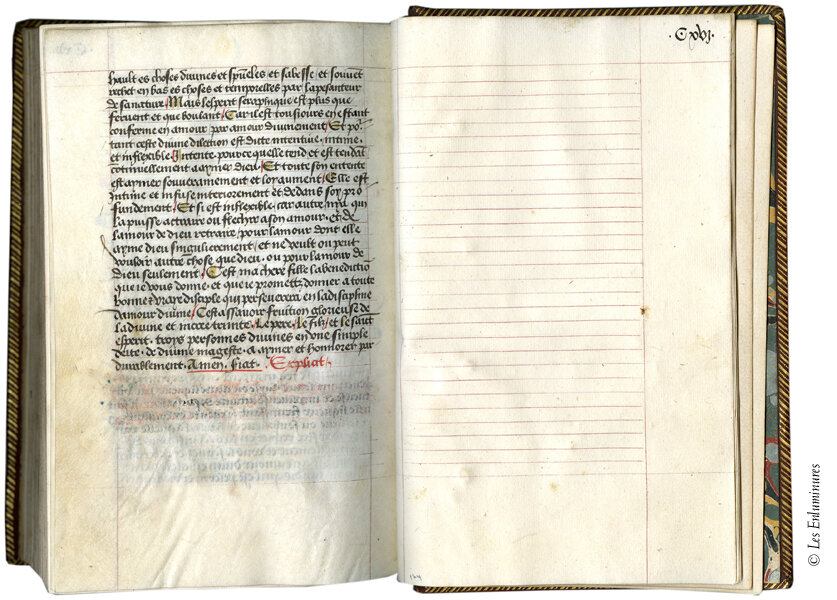 hault es choses divines et spũeles et sabesse et souvẽt
rechet en bas es choses et temporelles par la pesanteur
de sa nature / Mais lesperit seraphinque est plus que
fervent et que boulant / Car il est tousiours en estant
conforme en amour par amour divinement / Et por
tant ceste divine dilection est dicte intentive intime
et inflexible / Intente pource quelle tend et est tendãt
cõtinuellement a aymer dieu / Et toute son entente
est aymer souverainement et loyaument / Elle est
Intime et infuse interiorement et dedans soy pro
fundement / Et si est inflexible car autre na qui
la puisse actraire ou flechir a son amour et de
lamour de dieu retraire / pour lamour dont elle
ayme dieu singulierement / et ne veult ou peut
vouloir autre chose que dieu ou pour lamour de
dieu seulement / Cest ma chere fille la benedictiõ
que ie vous donne et que ie promettz donner a toute
bonne et vraye disciple qui perseverera en la discipline
damour divine / Cest assavoir fruition glorieuse de
la divine et incree trinite / le pere / le filz / et le saict
esperit troys personnes divines en une simple
deite de divine mageste a aymer et honnorer par
durablement. Amen. fiat. Explicit.
.Cxvj.
© Les Enluminures